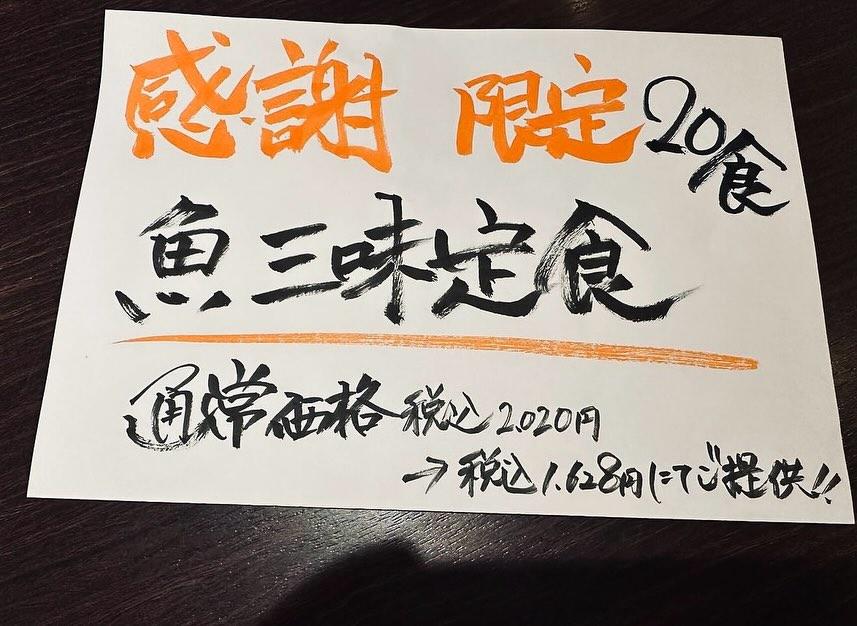 感謝 限定20食
魚三味定食
通常価格 税込2,020円
→税込1,628円にてご提供!!